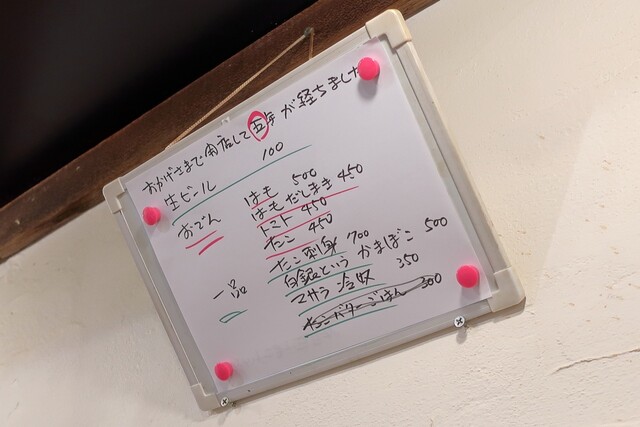 おかげさまで開店して五年が経ちました
生ビール 100
おでん はも 500
はもだしまき 450
トマト 450
たこ 450
一品 たこ刺身 700
白銀というかまぼこ 500
マサラ冷奴 350
ごはん 300